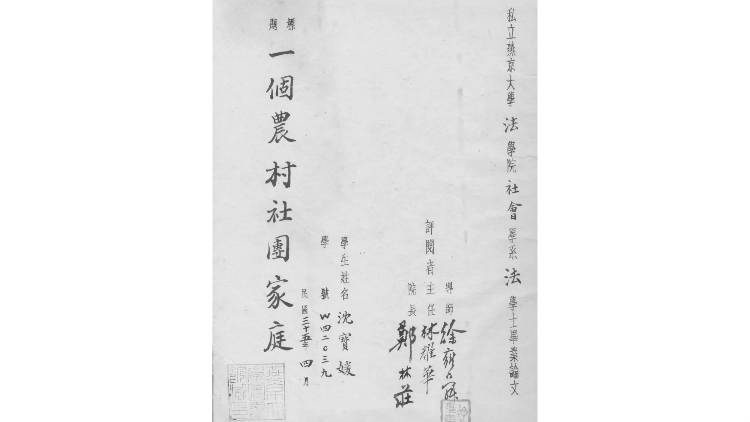 私立燕京大學法學院社會學系法學士畢業論文
評閱者
導師 徐雍舜
主任 林耀華
院長 鄭林莊
學生姓名 沈寶媛
學號 W四二〇三九
民國三十五年四月
標題 一個農村社團家庭